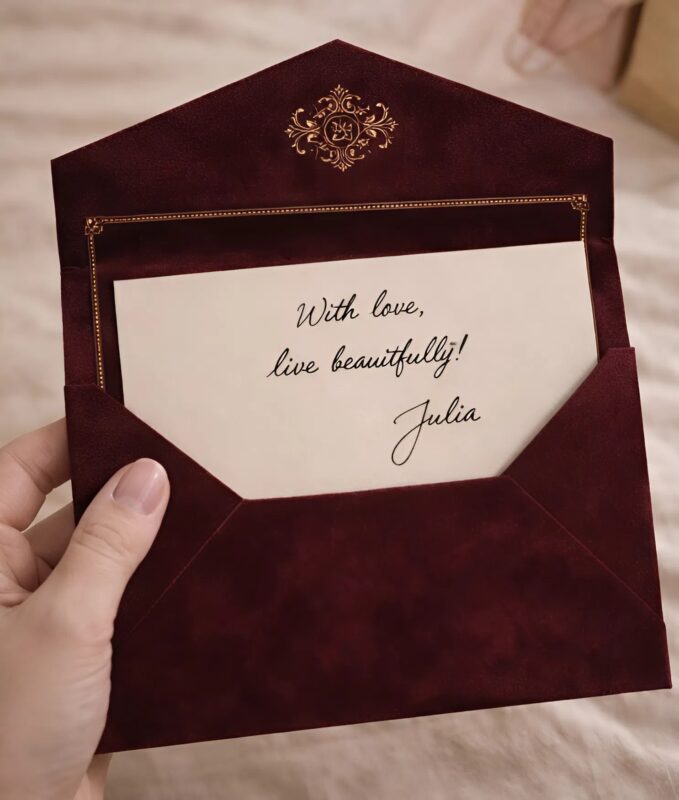 With love,
live beauitfully!
Julia